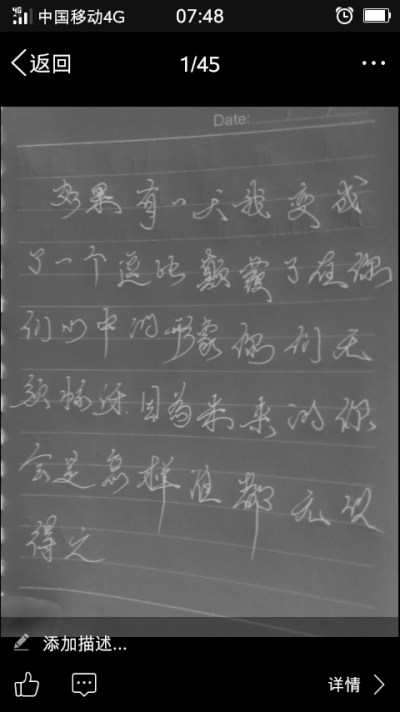 中国移动4G 07:48
返回 1/45
Date:
如果有一天我变成
了一个逗比颠覆了在你
们心中的形象你们无
须惊讶因为未来的你
会是怎样谁都无以
得之
添加描述...
详情